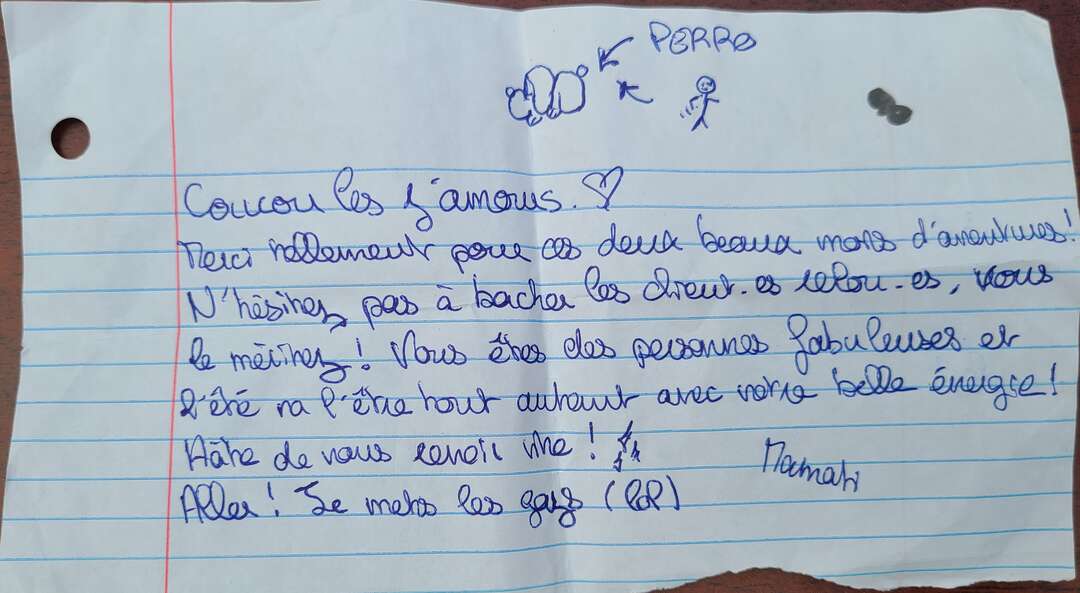 PERRO
Coucou les z'amours. ♡
Merci tellement pour ces deux beaux mois d'aventures!
N'hésitez pas à bacher les client-es relou-es, vous
le méritez! Vous êtes des personnes fabuleuses et
l'été va l'être tout autant avec votre belle énergie!
Hâte de vous revoir vite!
Aller! Je mets les gazs (lol)